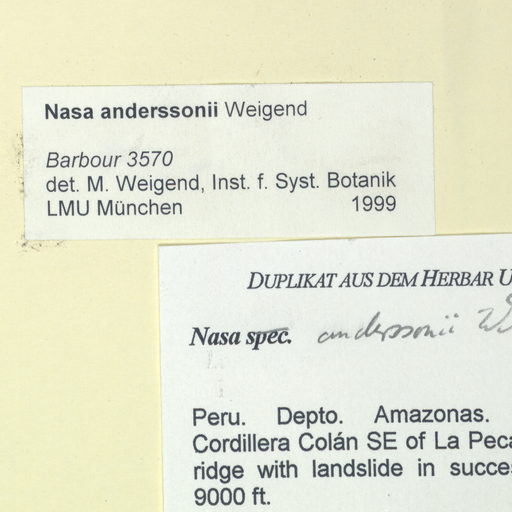 Nasa anderssonii Weigend
Barbour 3570
det. M. Weigend, Inst. f. Syst. Botanik
LMU München 1999
DUPLIKAT AUS DEM HERBAR
Nasa spec. anderssonii
Peru. Depto. Amazonas.
Cordillera Colán SE of La
ridge with landslide in
9000 ft.